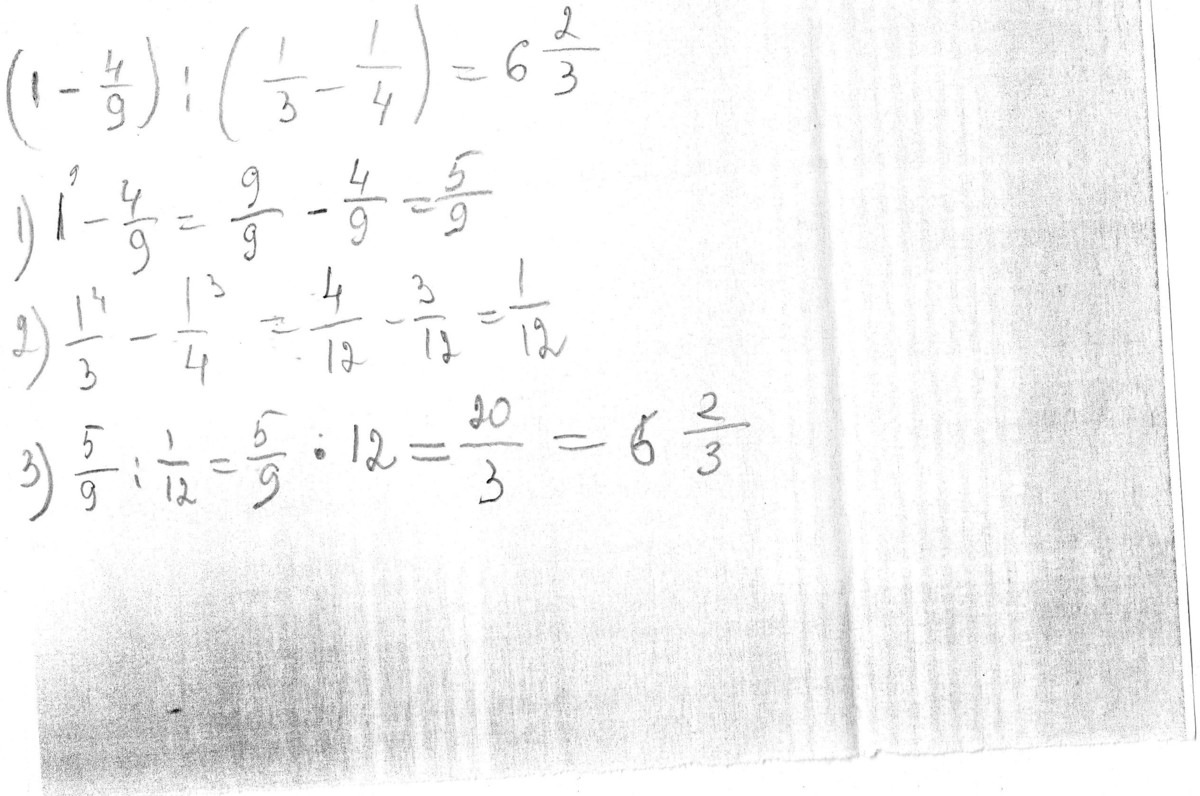 (1 - 4/9) : (1/3 - 1/4) = 6 2/3
1) 1⁹ - 4/9 = 9/9 - 4/9 = 5/9
2) 1⁴/3 - 1³/4 = 4/12 - 3/12 = 1/12
3) 5/9 : 1/12 = 5/9 · 12 = 20/3 = 6 2/3